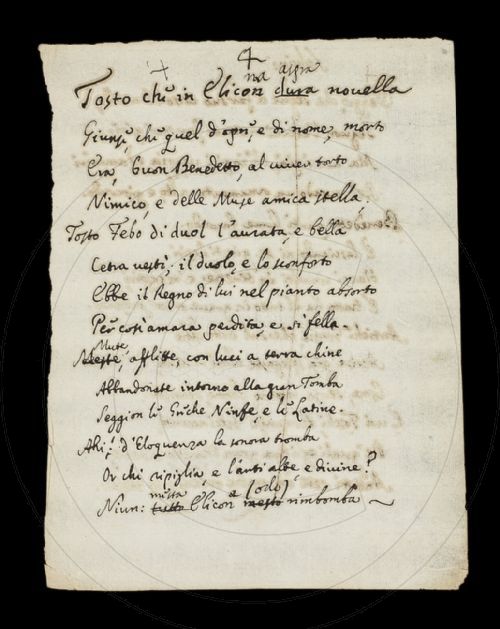 ma aspra
Tosto chè in Elicon dura novella
Giunse, chè quel d'opre, e di nome, morto
Era, buon Benedetto, al viver torto
Nimico, e delle Muse amica stella,
Tosto Febo di duol l'aurata, e bella
Cetra vestì, il duolo, e lo sconforto
Ebbe il Regno di lui nel pianto absorto
Per così amara perdita, e sì fella.
Muse
afflitte, con luci a terra chine
Abbandonate intorno alla gran Tomba
Seggion le Greche Ninfe, e le Latine.
Ahi! d'Eloquenza la sonora tromba
Or chi ripiglia, e l'arti alte, e divine?
mista e (odo)
Niun: tutto Elicon mesto rimbomba